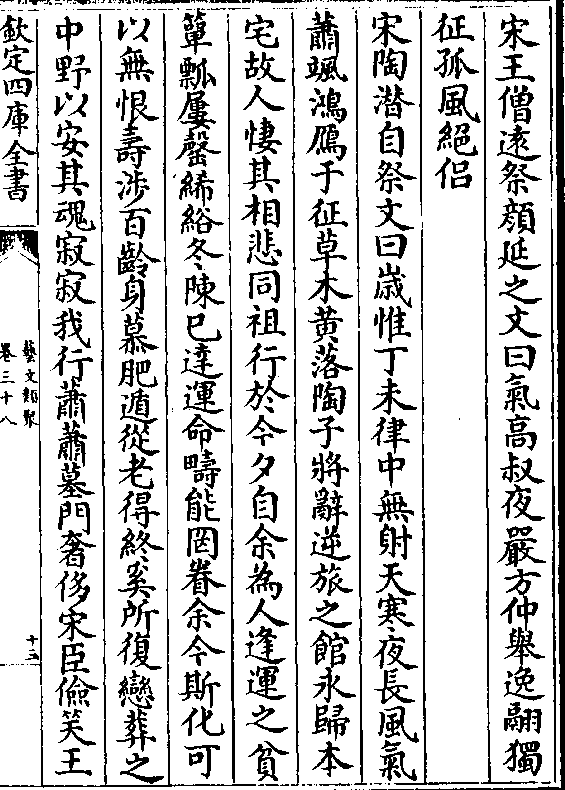 宋王僧逺祭顔延之文曰氣高叔夜嚴方仲舉逸翮獨
征孤風絕侣
宋陶潜自祭文曰歳惟丁未律中無射天寒夜長風氣
蕭颯鴻鴈于征草木黄落陶子將辭逆旅之館永歸本
宅故人悽其相悲同祖行於今夕自余為人逢運之貧
簞瓢屢罄絺綌冬陳已達運命疇能罔眷余今斯化可
以無恨壽渉百齡身慕肥遁從老得終奚所復戀葬之
中野以安其魂寂寂我行蕭蕭墓門奢侈宋臣儉笑王
欽定四庫全書
藝文類聚
卷三十八
十三